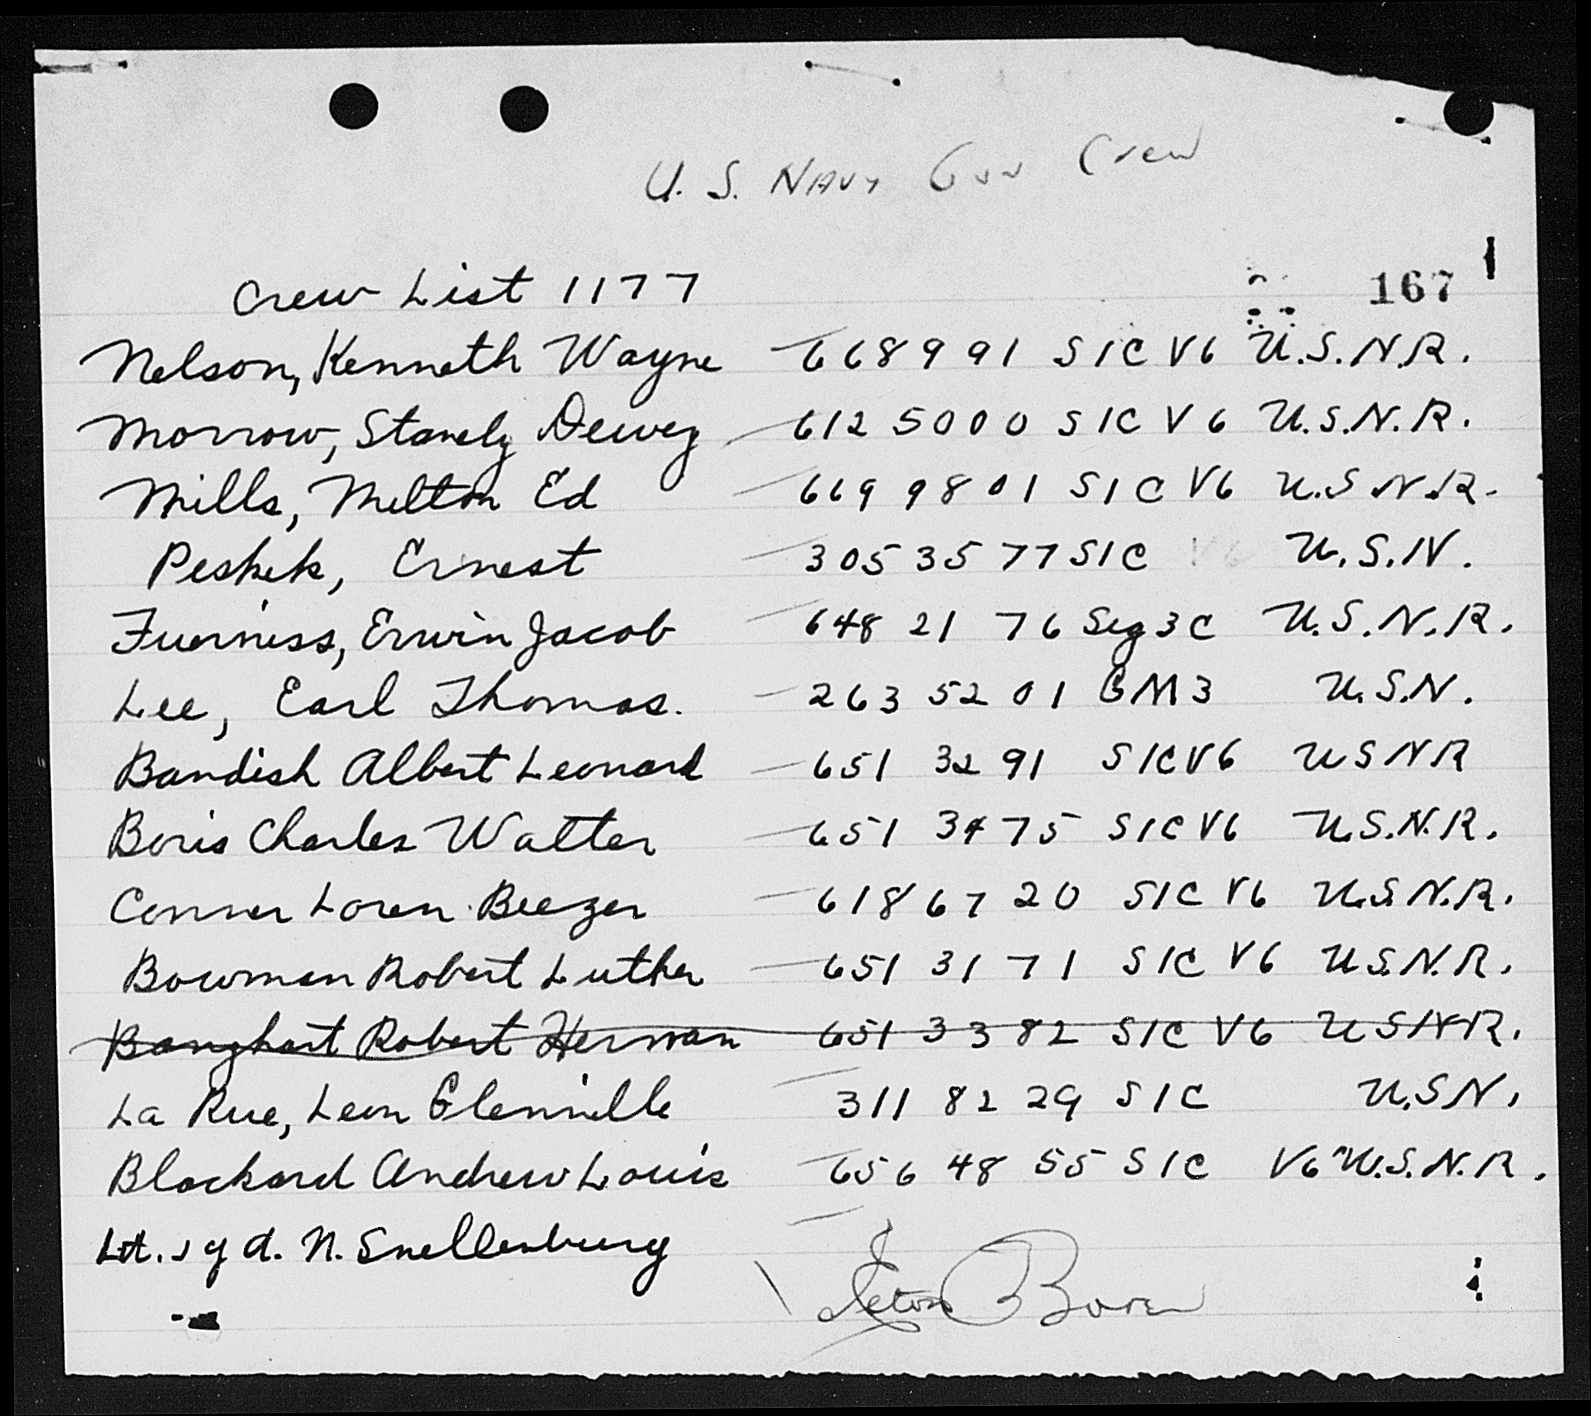 U. S. NAVY Gun Crew
Crew List 1177
167
Nelson, Kenneth Wayne - 668 9 91 S1C V6 U.S.N.R.
Morrow, Stanely Dewey - 612 50 00 S1C V6 U.S.N.R.
Mills, Melton Ed - 669 98 01 S1C V6 U.S.N.R.
Peshek, Ernest - 305 35 77 S1C V6 U.S.N.
Fuerniss, Erwin Jacob - 648 21 76 Sig3C U.S.N.R.
Lee, Earl Thomas. - 263 52 01 GM3 U.S.N.
Bandish Albert Leonard - 651 32 91 S1C V6 USNR
Boris Charles Walter - 651 34 75 S1C V6 U.S.N.R.
Conner Loren Beezer - 618 67 20 S1C V6 U.S.N.R.
Bowman Robert Luther - 651 31 71 S1C V6 U.S.N.R.
Banghart Robert Herman 651 33 82 S1C V6 USNR.
La Rue, Leon Glennille - 311 82 29 S1C U.S.N.
Blackard Andrew Louis - 656 48 55 S1C V6 U.S.N.R.
Lt. J g d. N. Snellenburg -